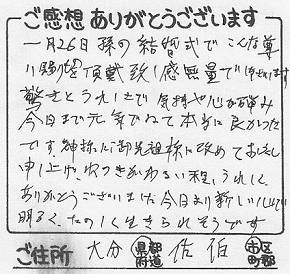 ご感想ありがとうございます
一月26日孫の結婚式でこんな尊
い頂戴致し感無量で
驚きとうれしさで気持や心が
今日まで元気でいて本当に良かった
です。神様に御先祖様に改めてお
申し上げ、れつきがわるい程、うれしく
ありがとうございました今日より新しい
明るく、たのしく生きられそうです
ご住所 大分 都道府県 佐伯 市区町郡